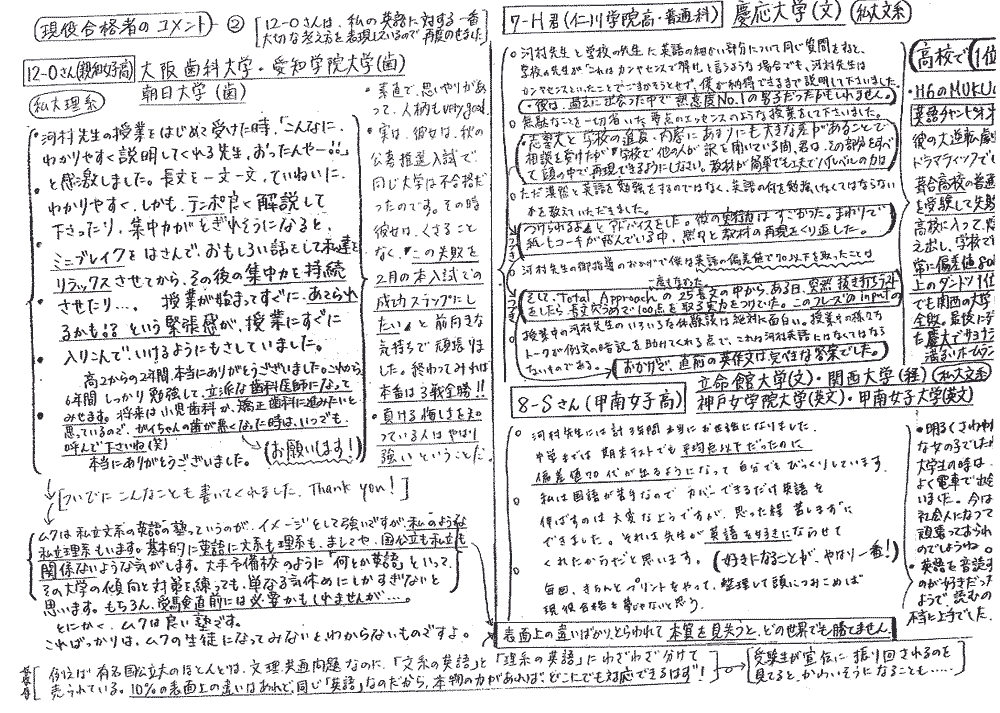 現役合格者のコメント - ②
[12-Oさんは、私の英語に対する一番
大切な考え方を表現しているので再度のせました]
12-Oさん(親和女子高) 大阪歯科大学・愛知学院大学(歯)
朝日大学(歯)
私大理系
・河村先生の授業をはじめて受けた時、「こんなに、
わかりやすく説明してくれる先生、おったんやー!!」
と感激しました。長文を一文一文、ていねいに、
わかりやすく、しかも、テンポ良く解説して
下さったり、集中力がとぎれそうになると、
ミニブレイクをはさんで、おもしろい話をして私達を
リラックスさせてから、その後の集中力を持続
させたり…。 授業が始まってすぐに、あてられ
るかも!? という緊張感が、授業にすぐに
入りこんでいけるようにもさしていました。
高2からの2年間、本当にありがとうございました。これから
6年間しっかり勉強して、立派な歯科医師になって
みせます。将来は小児歯科か、矯正歯科に進みたいと
思っているので、ガイちゃんの歯が悪くなった時は、いつでも
呼んで下さいね(笑)
本当にありがとうございました。
(お願いします!)
・素直で、思いやりがあ
って、人柄もvery good.
・実は、彼女は、秋の
公募推薦入試で、
同じ大学は不合格だ
ったのです。その時
彼女は、くさること
なく、「この失敗を
2月の本入試での
成功ステップにし
たい」と前向きな
気持ちで頑張りま
した。終わってみれば
本番は3戦全勝!!
・負ける悔しさを知
っている人はやはり
強いということだ。
[ついでにこんなことも書いてくれました。Thank you!]
ムクは私立文系の英語の塾っていうのが、イメージとして強いですが、私のような
私立理系もいます。基本的に英語に文系も理系も、ましてや、国公立も私立も
関係ないような気がします。大手予備校のように「何とか英語」といって、
その大学の傾向と対策を練っても、単なる気休めにしかすぎないと
思います。もちろん、受験直前には必要かもしれませんが…。
とにかく、ムクは良い塾です。
こればっかりは、ムクの生徒になってみないとわからないものですよ。
7-H君(仁川学院高・普通科) 慶応大学(文) 私大文系
河村先生と学校の先生に英語の細かい部分について同じ質問をすると、
学校の先生が“これはカンヤセンスで解け”と言うような場合でも、河村先生は
カンヤセンスといったことでごまかそうとせず、僕が納得できるまで説明して下さいました。
・彼は、過去に出会った中で熱意度No.1の男子だったかもしれません。
無駄なことを一切省いた要点のエッセンスのような授業をして下さいました。
・志望大と学校の進度・内容にあまりにも大きな差があることで
相談を受けたが「学校で他の人が訳を聞いている間、君は、その部分をすべ
て頭の中で再現できるようにしなさい。教材が簡単でも工夫でハイレベルの力は
ただ漠然と英語を勉強をするのではなく、英語の何を勉強しなくてはならない
かを教えていただきました。
つけられるよ」とアドバイスをした。彼の実践はすごかった。まわりで
紙ヒコーキが飛んでいる中、黙々と教材の再現をくり返した。
河村先生の御指導のおかげで僕は英語の偏差値で70以下を取ったことは
一度もなかった
そして、Total Approachの25長文の中から、ある日、突然抜き打ちテスト
をしたら長文穴うめで100点を取る実力をつけていた。このフレーズのinputの
授業中の河村先生のいろいろな体験談は絶対に面白い。授業中の様々な
トークが例文の暗記を助けてくれる点で、これは河村英語にはなくてはなら
ないものである。
おかげで、直前の英作文は完ぺきな答案でした。
8-Sさん(甲南女子高)
立命館大学(文)・関西大学(経) 私大文系
神戸女学院大学(英文)・甲南女子大学(英文)
河村先生には計3年間本当にお世話になりました。
中学までは期末テストでも平均点以下だったのに
偏差値70代が出るようになって自分でもびっくりしています。
私は国語が苦手なのでカバーできるだけ英語を
伸ばすのは大変なようですが、思った程苦しまずに
できました。それは先生が英語を好きにならせて
くれたからだと思います。
(好きになることが、やはり一番!)
毎回、きちんとプリントをやって、整理して頭につめこめば
現役合格も夢じゃないと思う。
高校で1位
・H6のMUKU
英語チャンピオン
彼の大逆転劇
ドラマティックで
葺合高校の普通
を受験して失敗
高校に入って、
え出し、学校で
常に偏差値80以
上のダントツ1位
でも関西の大学
全敗。最後に
た慶大でサヨナラ
満るいホームラン
・明るくさわやか
な女の子でした
大学生の時は、
よく電車で出会
いました。今は
社会人になって
頑張っておられ
のでしょうね。
・英語を音読する
のが好きだった
ようで読むの
本当に上手でした。
表面上の違いばかり、とらわれて本質を見失うと、どの世界でも勝てません
例えば有名国公立大のほとんどは、文理共通問題なのに、「文系の英語」と「理系の英語」にわざわざ分けて
売られている。10%の表面上の違いはあれど、同じ「英語」なのだから、本物の力があれば、どこにでも対応できるはず!
[受験生が宣伝に振り回されるのを
見てると、かわいそうになることも……]